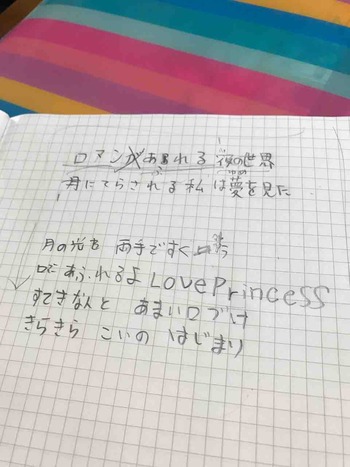 ロマンがあふれる 夜の世界
月にてらされる私は夢を見た
月の光を 両手ですくったら
ほらあふれるよ Love Princess
すてきな人と あまい口づけ
きらきら こいの はじまり